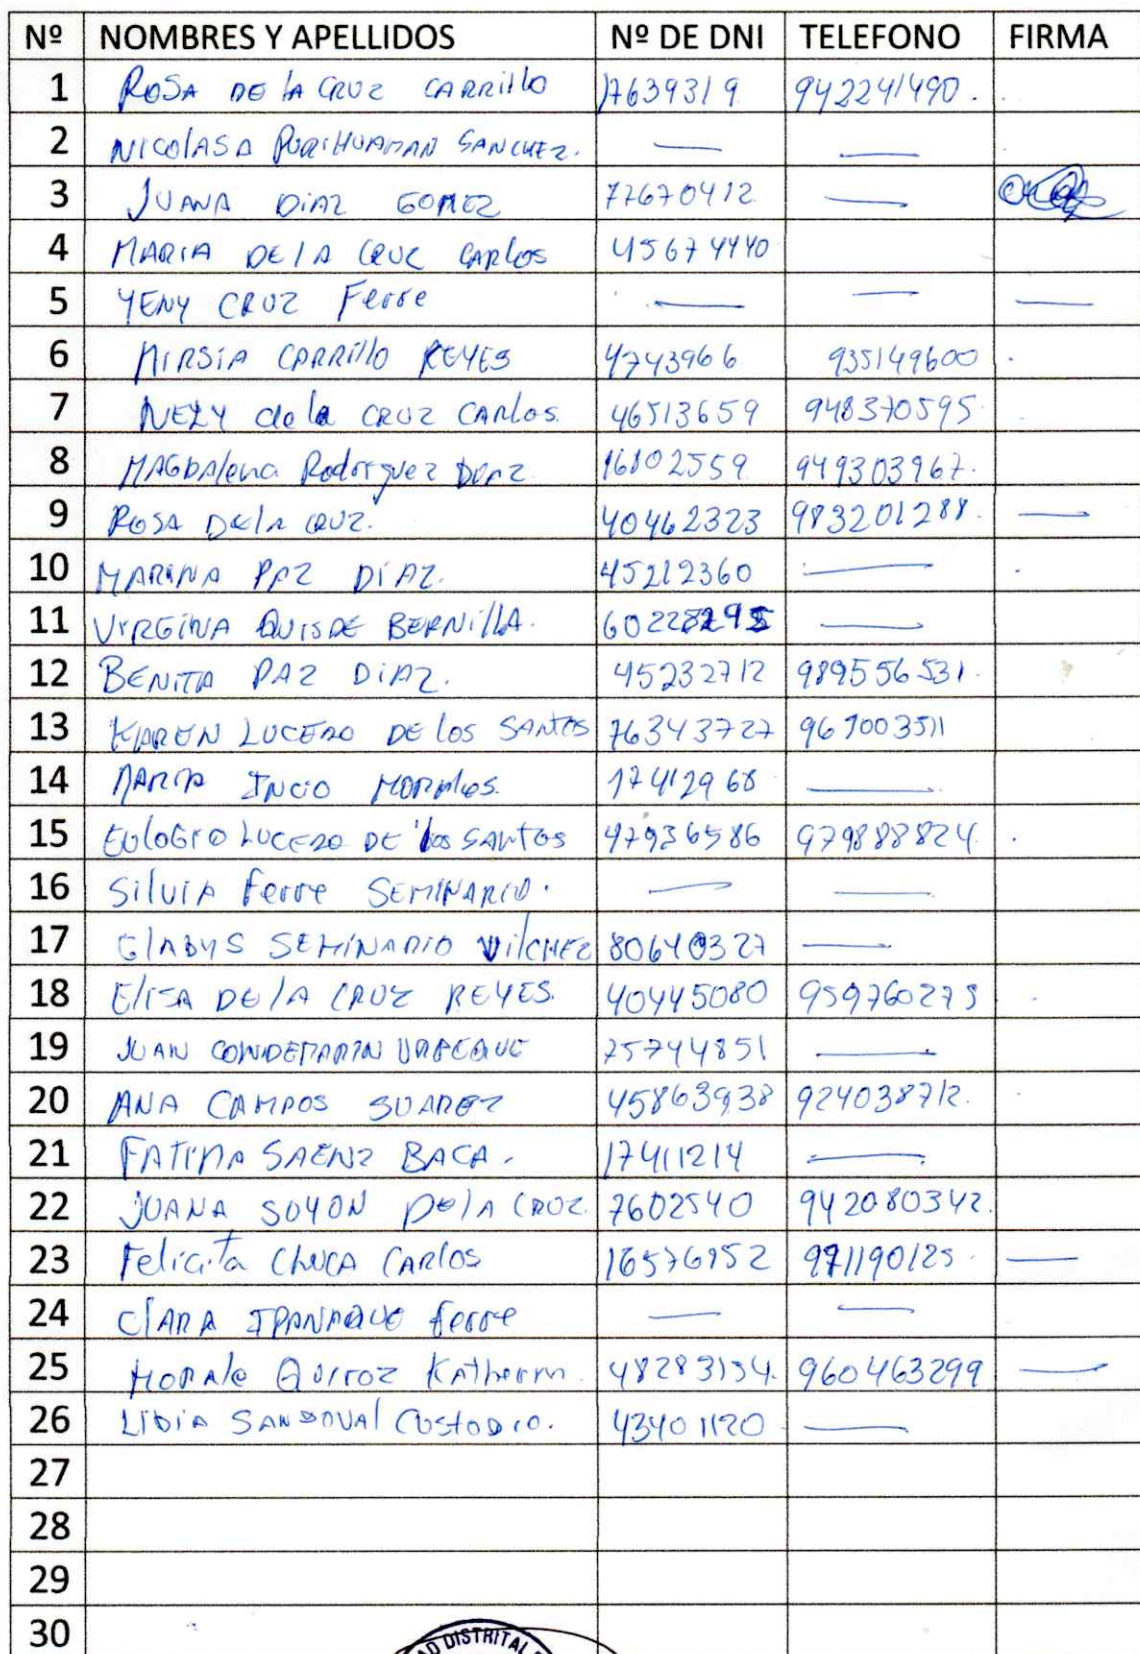 Nº NOMBRES Y APELLIDOS Nº DE DNI TELEFONO FIRMA
1 ROSA DE LA CRUZ CARRillO 17639319 942241490.
2 NICOLASA PURIHUAMAN SANCHEZ. — —
3 JUANA DiAZ GOMEZ 77670412 —
4 MARIA DE LA CRUZ CARLOS 45674440
5 YENY CRUZ Ferre — — —
6 MIRSIA CARRillO REYES 4743966 935149600
7 NELY de la CRUZ CARlos. 46513659 948370595
8 MAGDAlena Rodriguez DIAZ 16802559 949303967.
9 ROSA DE LA CRUZ. 40462323 983201288. —
10 MARINA PAZ DÍAZ. 45212360 —
11 VIRGINIA QUISPE BERNillA. 60228295 —
12 BENITA PAZ DiAZ. 45232712 989556531.
13 KAREN LUCERO DE los SANTOS 76343727 967003511
14 MARIA INCIO MORAles. 17412968 —
15 EULOGIO LUCERO DE los SANTOS 47936586 979888824.
16 SilviA Ferre SEMINARIO. — —
17 GlADYS SEMINARIO VilCHEZ 80640327 —
18 ElISA DE lA CRUZ REYES. 40445080 959760275
19 JUAN CONDEMARIN 25744851 —
20 ANA CAMPOS SUAREZ 45863938 924038712.
21 FATIMA SAENZ BACA. 17411214 —
22 JUANA SUYON DE lA CRUZ 7602540 942080342.
23 Felicita CHUCA CARlOS 16576952 971190125. —
24 ClARA IPANAQUE ferre — —
25 MORAle QUIROZ KATherin 48283134. 960463299 —
26 LIDIA SANDOVAl CUSTODIO. 43401120 —
27
28
29
30
AD DISTRITAL